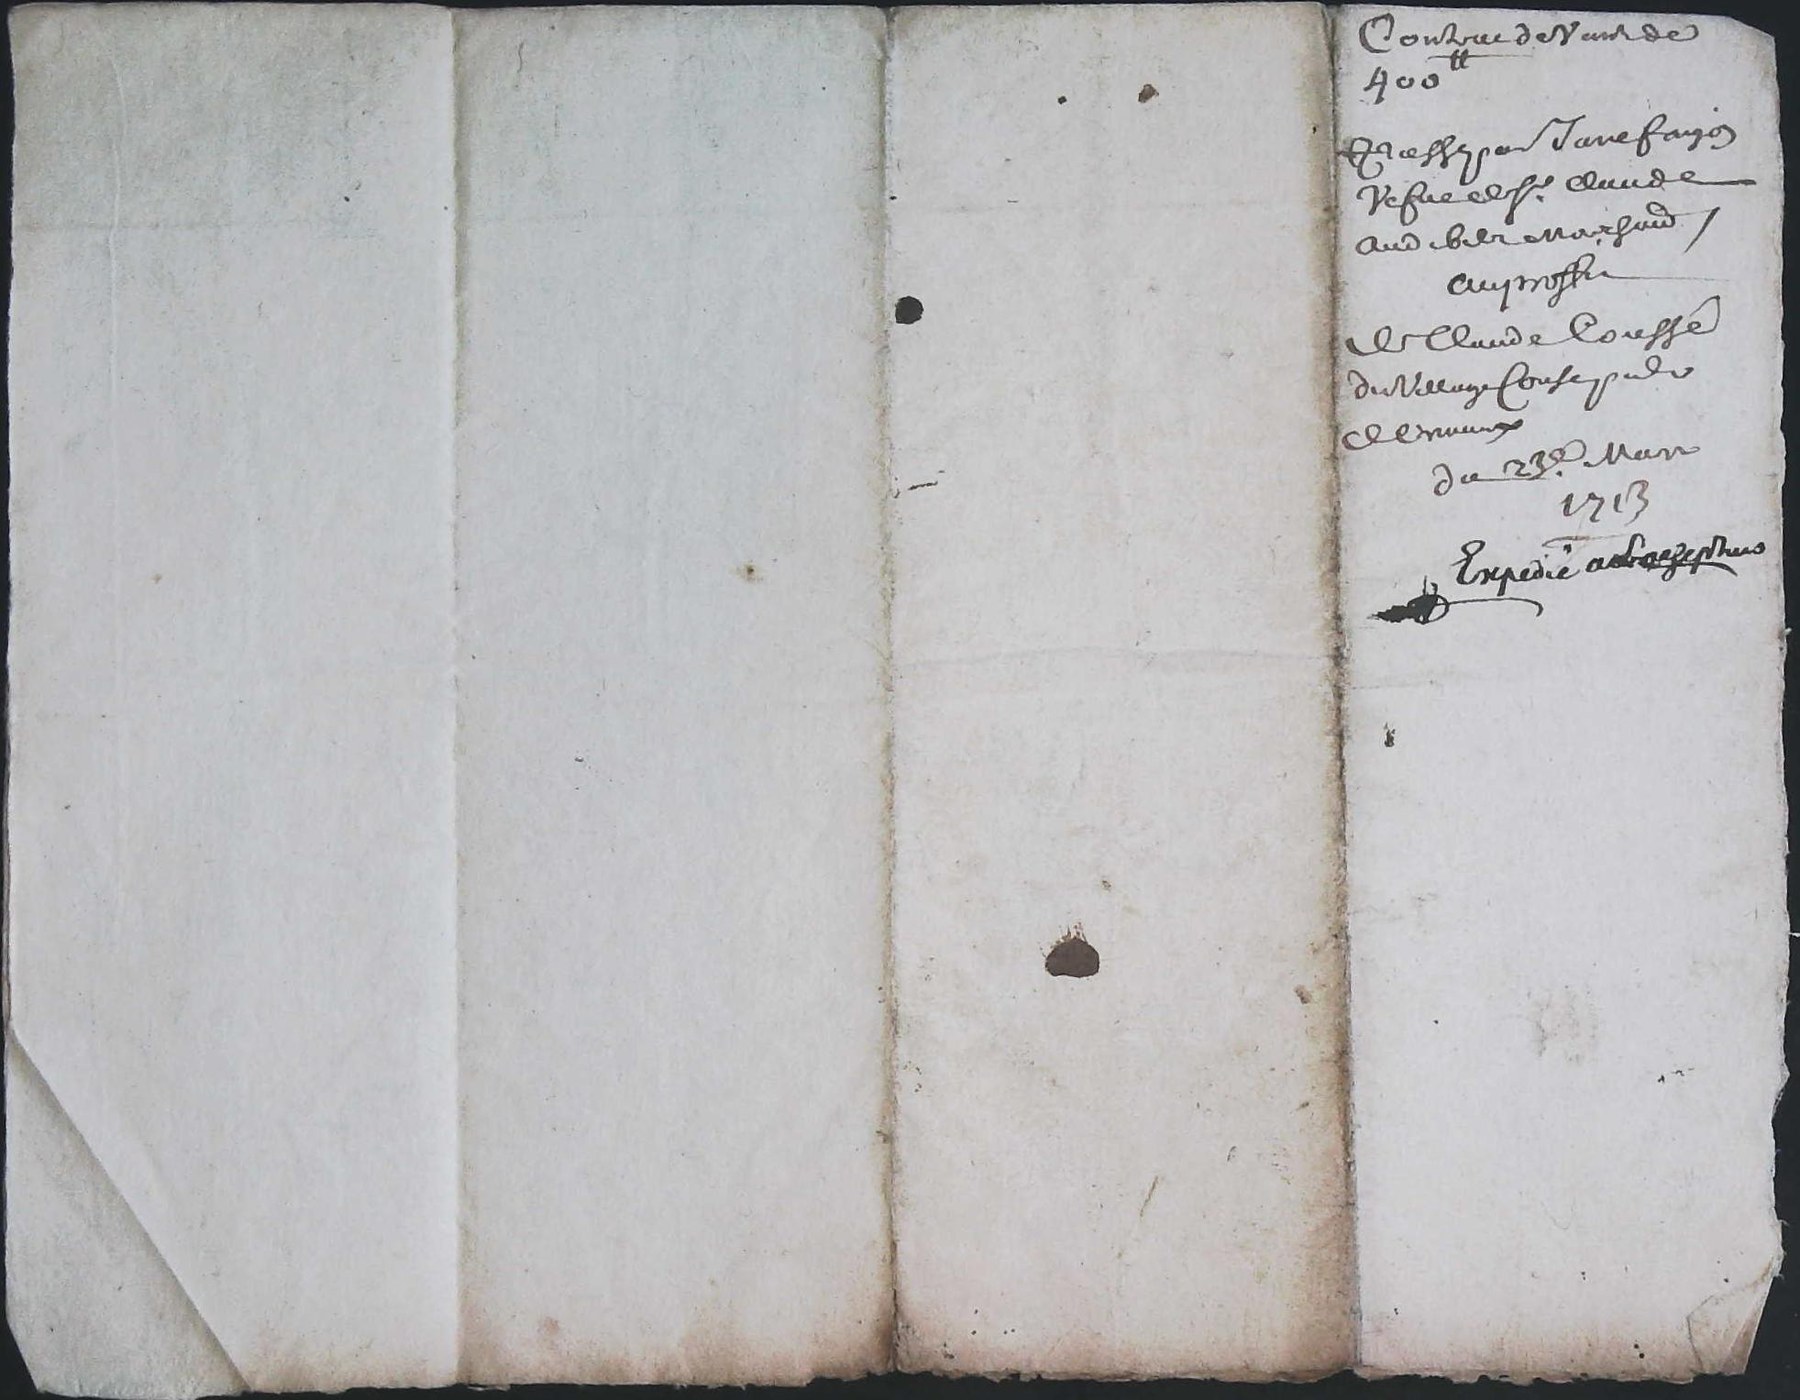 Contract de Vante de
400ll
Passé par Jane fanjon
Vefue de Sr. Claude
Audibert Marchand
au proffit
de Claude Coussé
du Village
du 23e. Mars
1713
Expedié